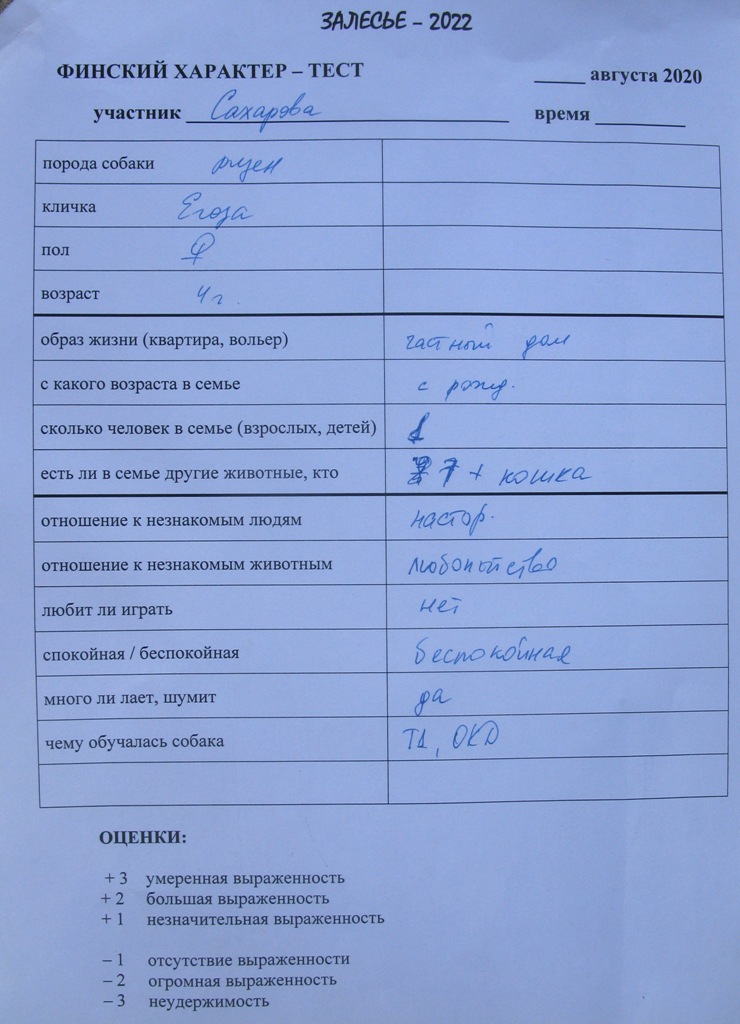 ЗАЛЕСЬЕ – 2022
ФИНСКИЙ ХАРАКТЕР – ТЕСТ _____ августа 2020
участник Сахарова время
порода собаки ризен
кличка Егоза
пол ♀
возраст 4 г.
образ жизни (квартира, вольер) частный дом
с какого возраста в семье с рожд.
сколько человек в семье (взрослых, детей) 1
есть ли в семье другие животные, кто 7 + кошка
отношение к незнакомым людям настор.
отношение к незнакомым животным любопытство
любит ли играть нет
спокойная / беспокойная беспокойная
много ли лает, шумит да
чему обучалась собака Т1, ОКД
ОЦЕНКИ:
+ 3 умеренная выраженность
+ 2 большая выраженность
+ 1 незначительная выраженность
– 1 отсутствие выраженности
– 2 огромная выраженность
– 3 неудержимость